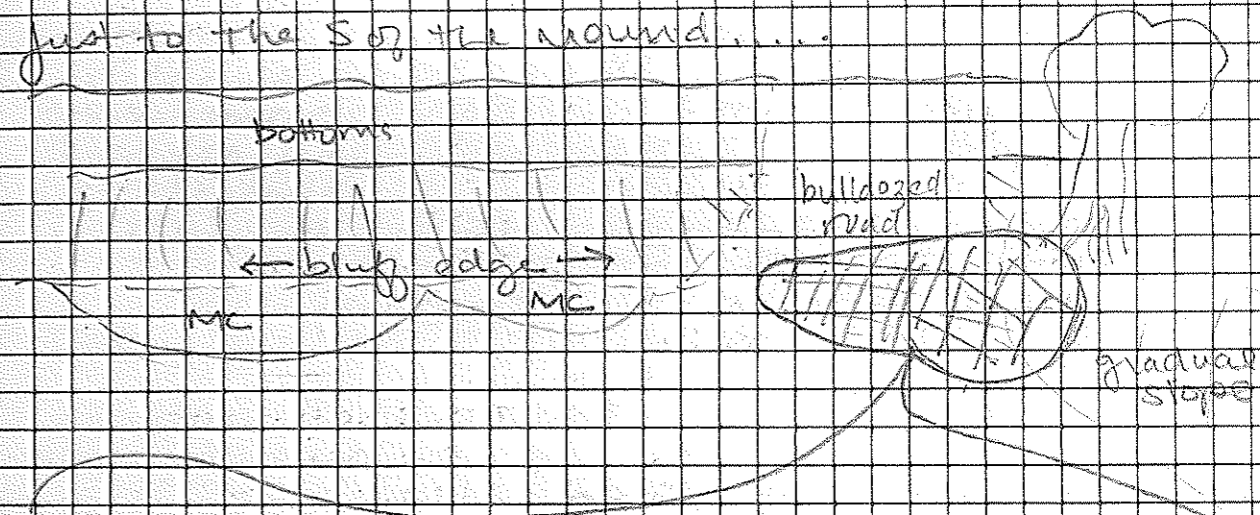 just to the S of the mound.....
bottoms
bulldozed
road
← bluff edge →
MC
MC
gradual
slope